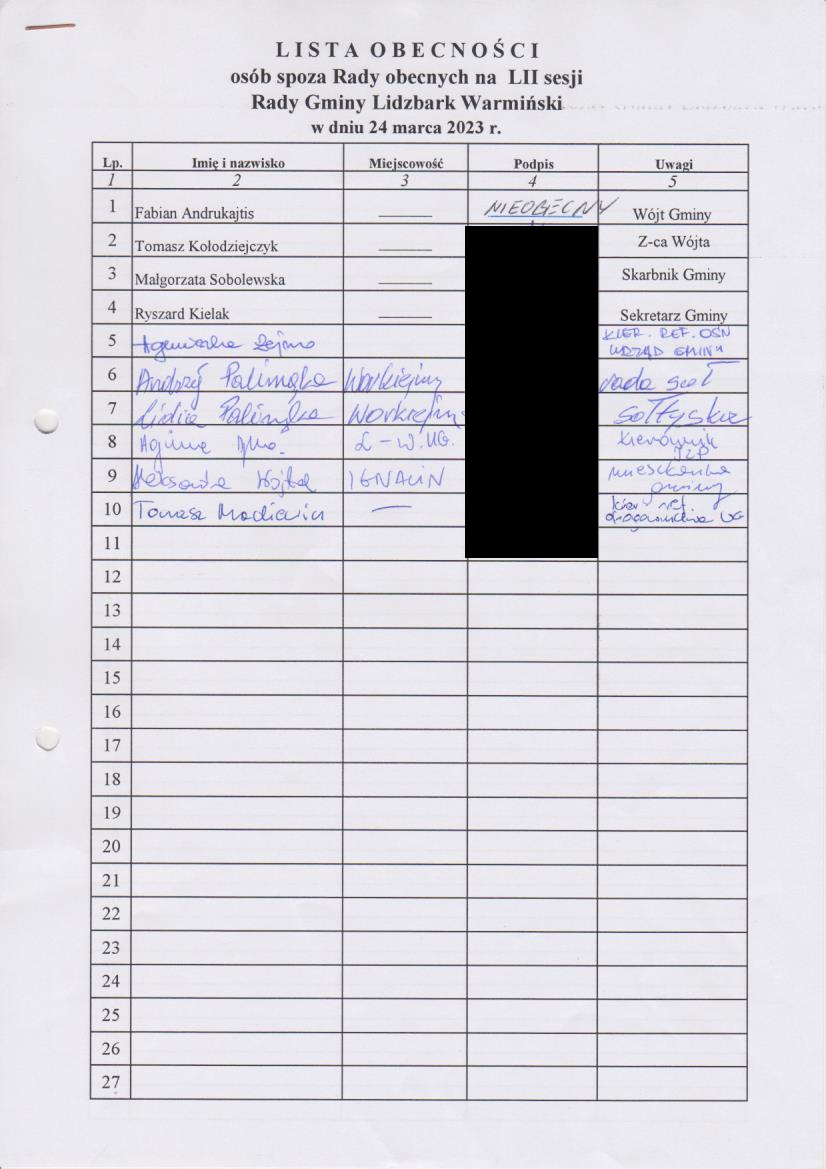 LISTA OBECNOŚCI
osób spoza Rady obecnych na LII sesji
Rady Gminy Lidzbark Warmiński
w dniu 24 marca 2023 r.
Lp. Imię i nazwisko Miejscowość Podpis Uwagi
1 2 3 4 5
1 Fabian Andrukajtis NIEOBECNY Wójt Gminy
2 Tomasz Kołodziejczyk Z-ca Wójta
3 Małgorzata Sobolewska Skarbnik Gminy
4 Ryszard Kielak Sekretarz Gminy
5 Agnieszka KIER. REF. OŚN
URZĄD GMINY
6 Andrzej Palimąka Workiejmy rada soł
7 Lidia Palimąka Workiejmy sołtyska
8 L-W. UG. kierownik
9 Aleksandra IGNALIN mieszkanka
gminy
10 Tomasz kier ref
UG
11
12
13
14
15
16
17
18
19
20
21
22
23
24
25
26
27